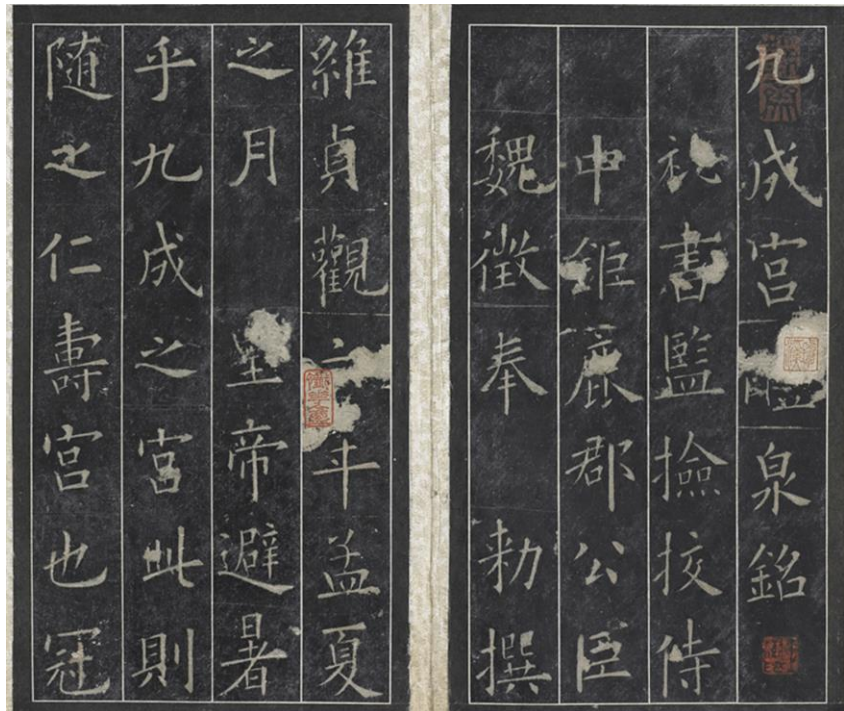 九成宮泉銘
秘書監撿挍侍
中鉅鹿郡公臣
魏徵奉 勅撰
維貞觀年孟夏
之月 皇帝避暑
乎九成之宮此則
随之仁壽宮也冠